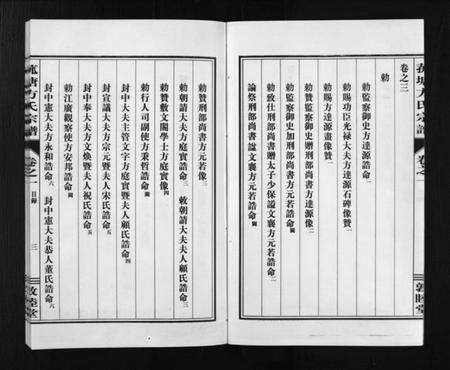 菰塘方氏宗譜
卷之
敦睦堂
卷之三
勅
勅監察御史方達源誥命一
勅賜功臣光祿大夫方達源石碑像贊一
勅賜方達源畫像贊二
勅贊監察御史贈刑部尚書方達源像二
勅監察御史加刑部尚書方元若誥命
勅致仕刑部尚書贈太子少保諡文襄方元若誥命二
諭祭刑部尚書諡文襄方元若誥命
勅贊刑部尚書方元若像三
勅朝請大夫方庭實誥命三
敕朝請大夫夫人顧氏誥命三
勅贊敷文閣學士方庭實像四
勅行人司副使方秉哲誥命
封中大夫主管文字方庭實暨夫人顧氏誥命四
封宣議大夫方宗元暨夫人宋氏誥命五
封中奉大夫方文煥暨夫人祝氏誥命五
勅江廣觀察使方安邦誥命
封中憲大夫方永和誥命六
封中憲大夫恭人董氏誥命六
菰塘方氏宗譜
卷之
目錄
三
敦睦堂